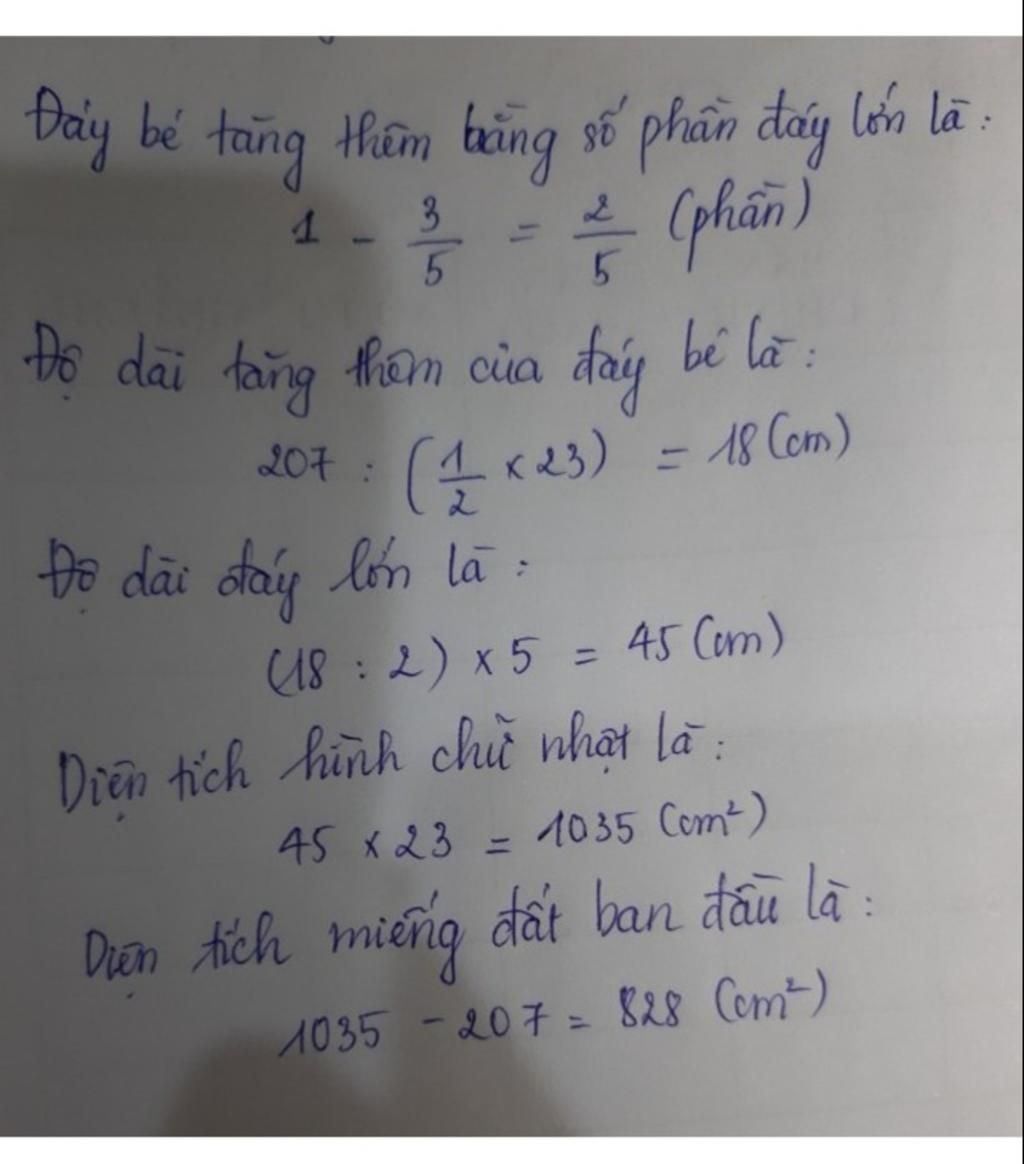 Đáy bé tăng thêm bằng số phần đáy lớn là:
1 - 3/5 = 2/5 (phần)
Độ dài tăng thêm của đáy bé là:
207 : (1/2 x 23) = 18 (cm)
Độ dài đáy lớn là:
(18 : 2) x 5 = 45 (cm)
Diện tích hình chữ nhật là:
45 x 23 = 1035 (cm²)
Diện tích miếng đất ban đầu là:
1035 - 207 = 828 (cm²)